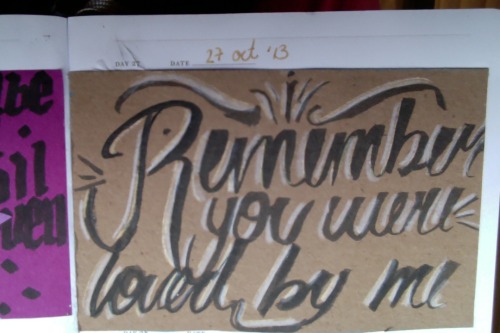 DAY 27 DATE 27 oct '13
Remember
you were
loved by me